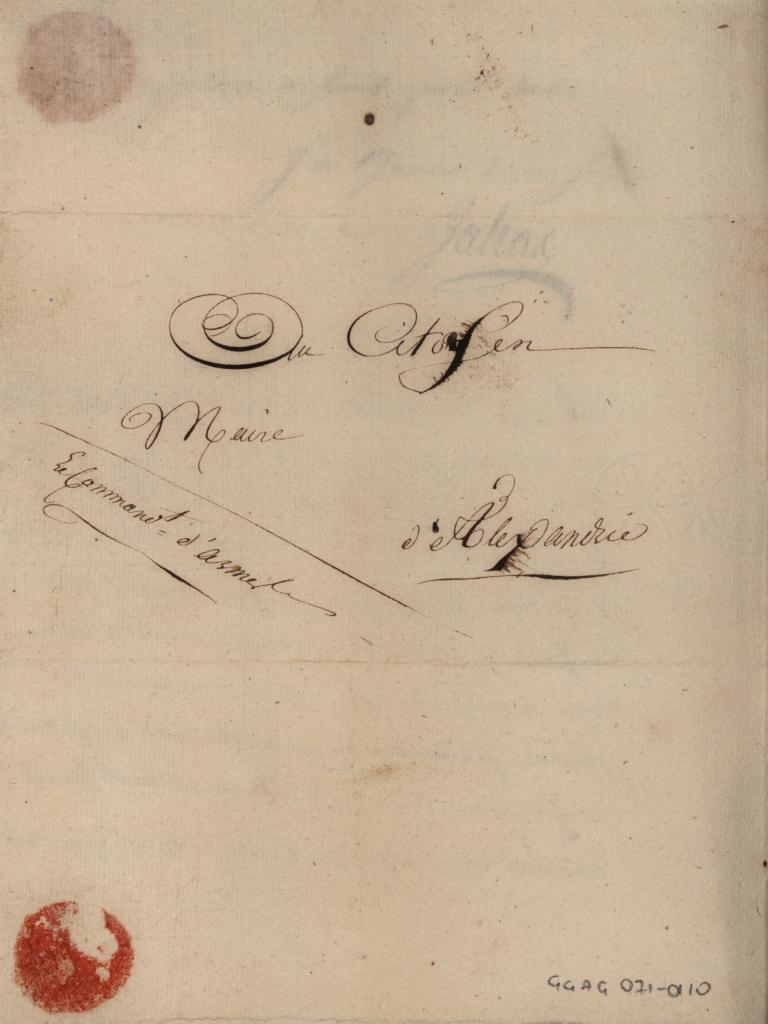 Au Citoyen
Maire
d'Alexandrie
Le Command.t d'armes
GGAG 071-010